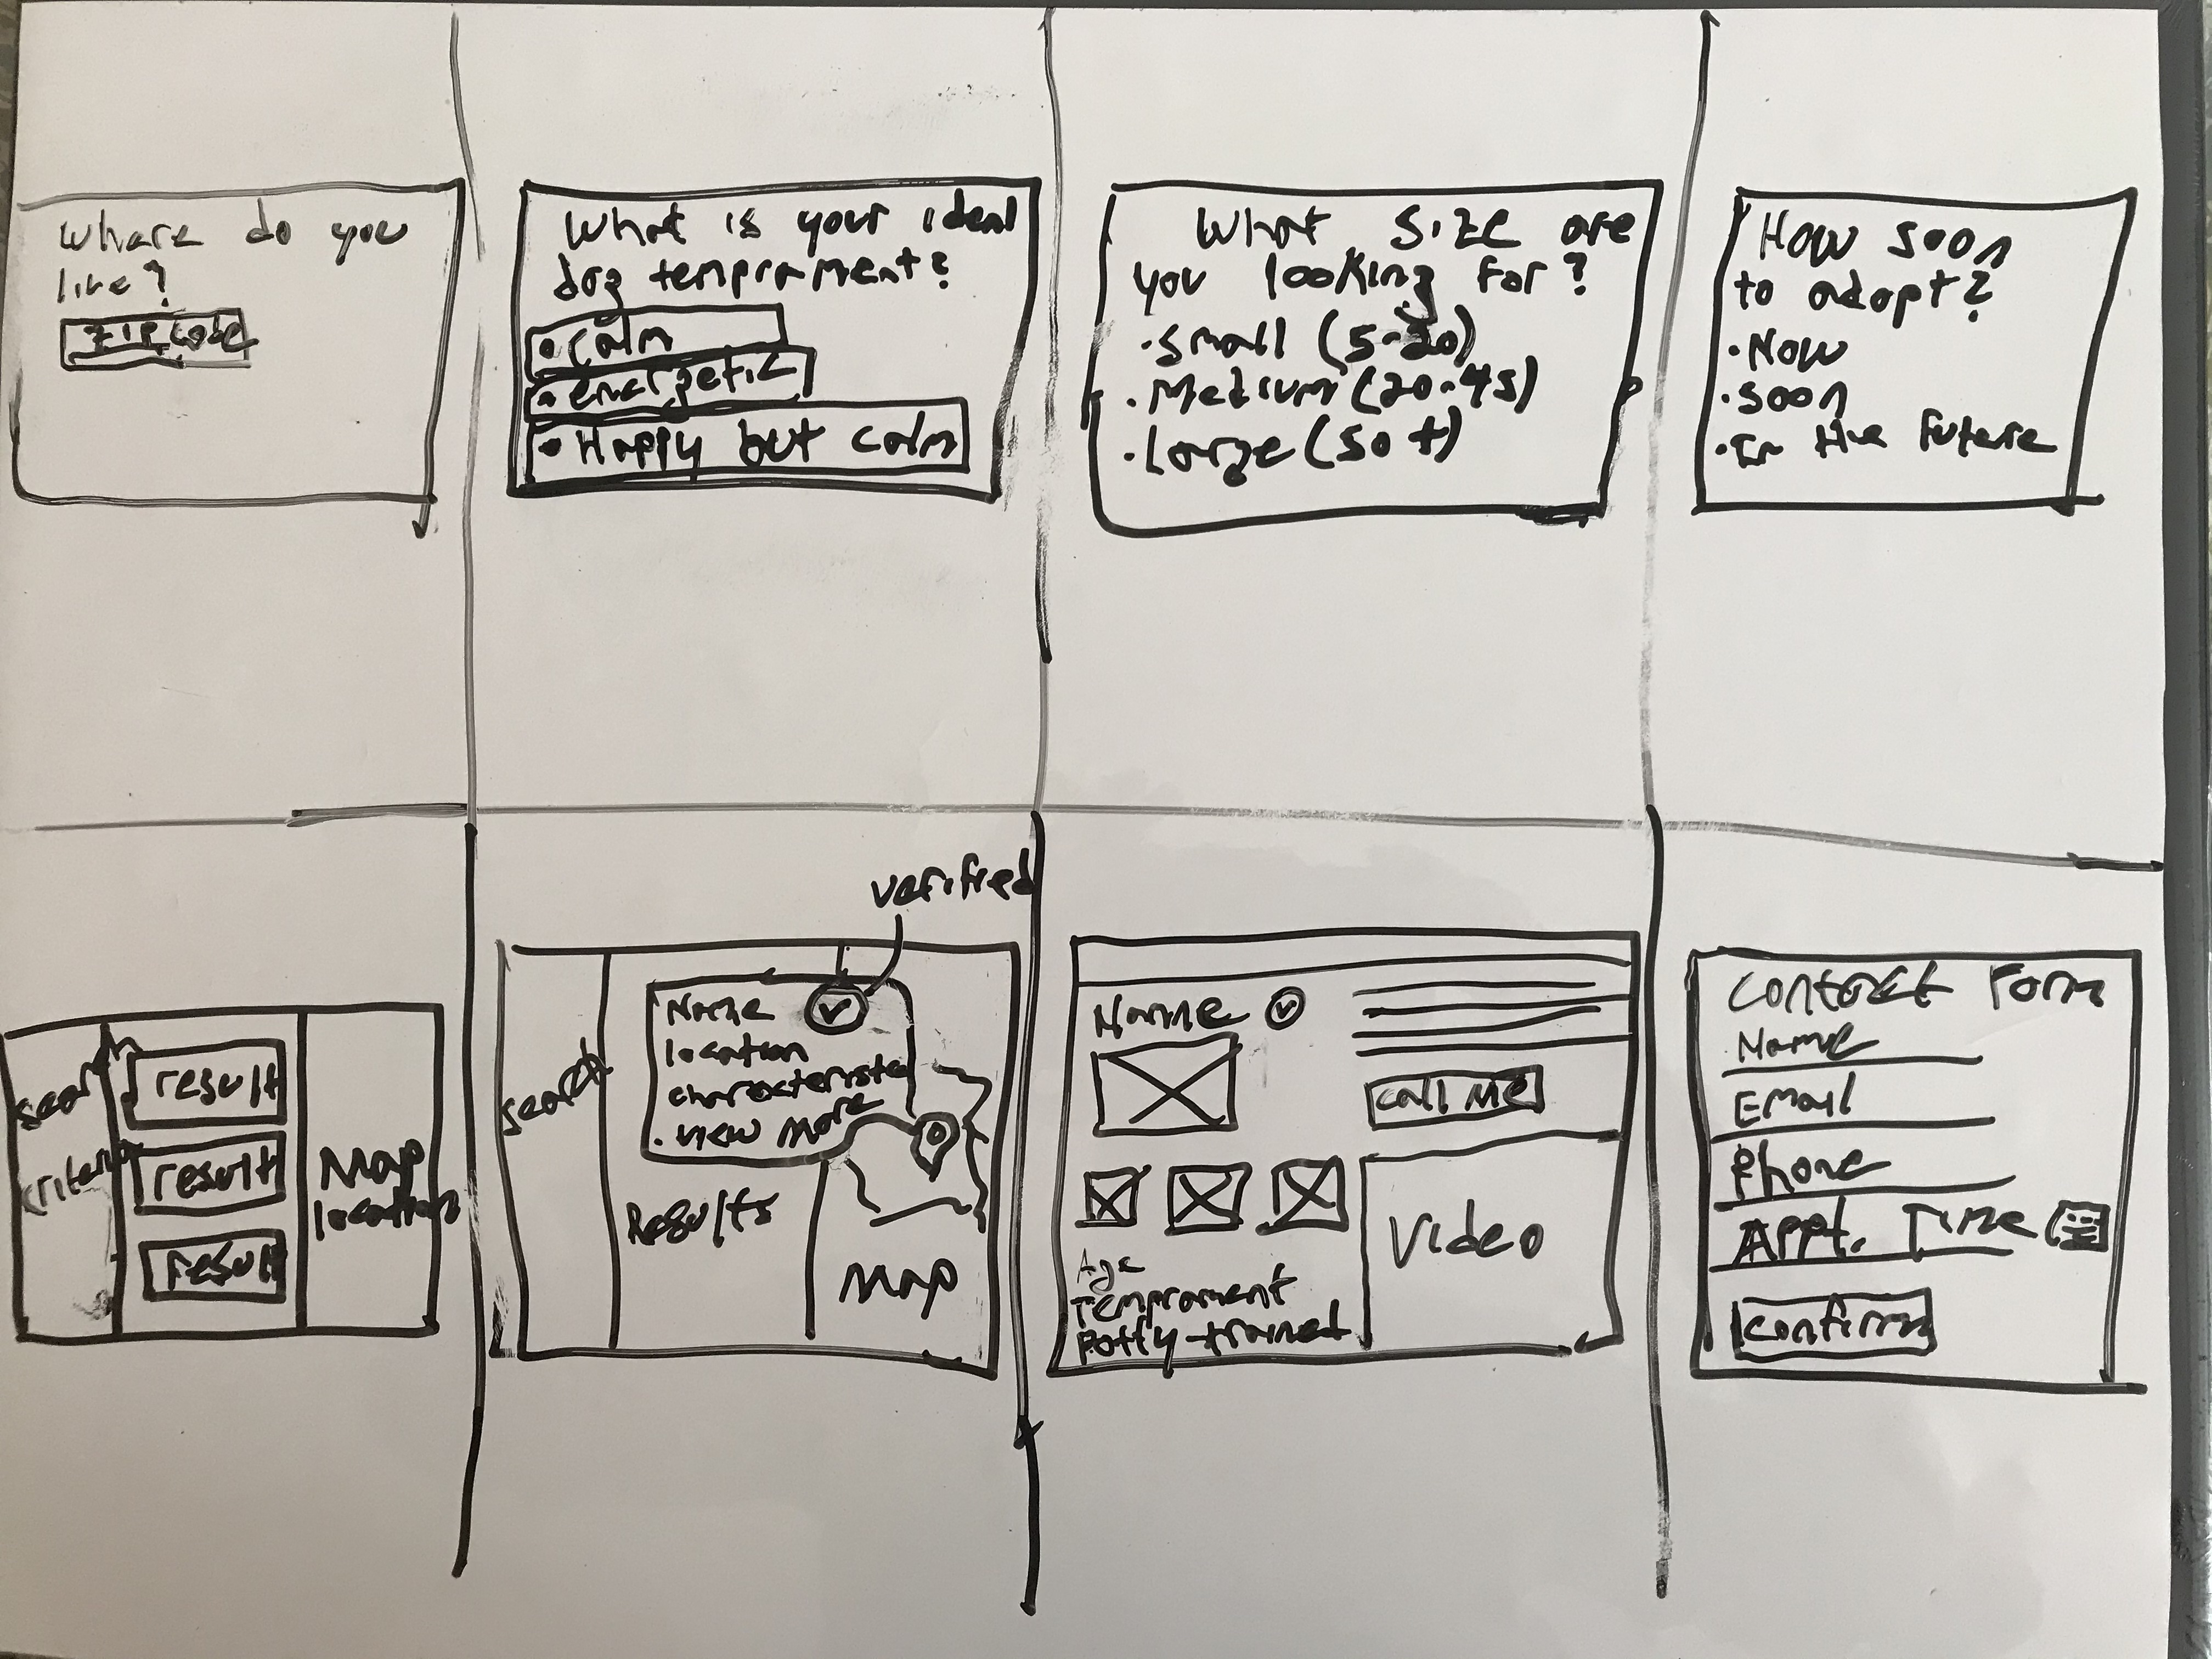 Where do you
live?
ZIP code
What is your ideal
dog temprament?
• calm
• energetic
• Happy but calm
What size are
you looking for?
• Small (5-20)
• Medium (20-45)
• Large (50+)
How soon
to adopt?
• Now
• soon
• In the future
search
criteria
result
result
result
Map
locations
verified
search
Name
location
characteristics
• view more
Results
Map
Name
call me
Video
Age
Temprament
Potty-trained
Contact Form
Name
Email
Phone
Appt. Time
Confirm